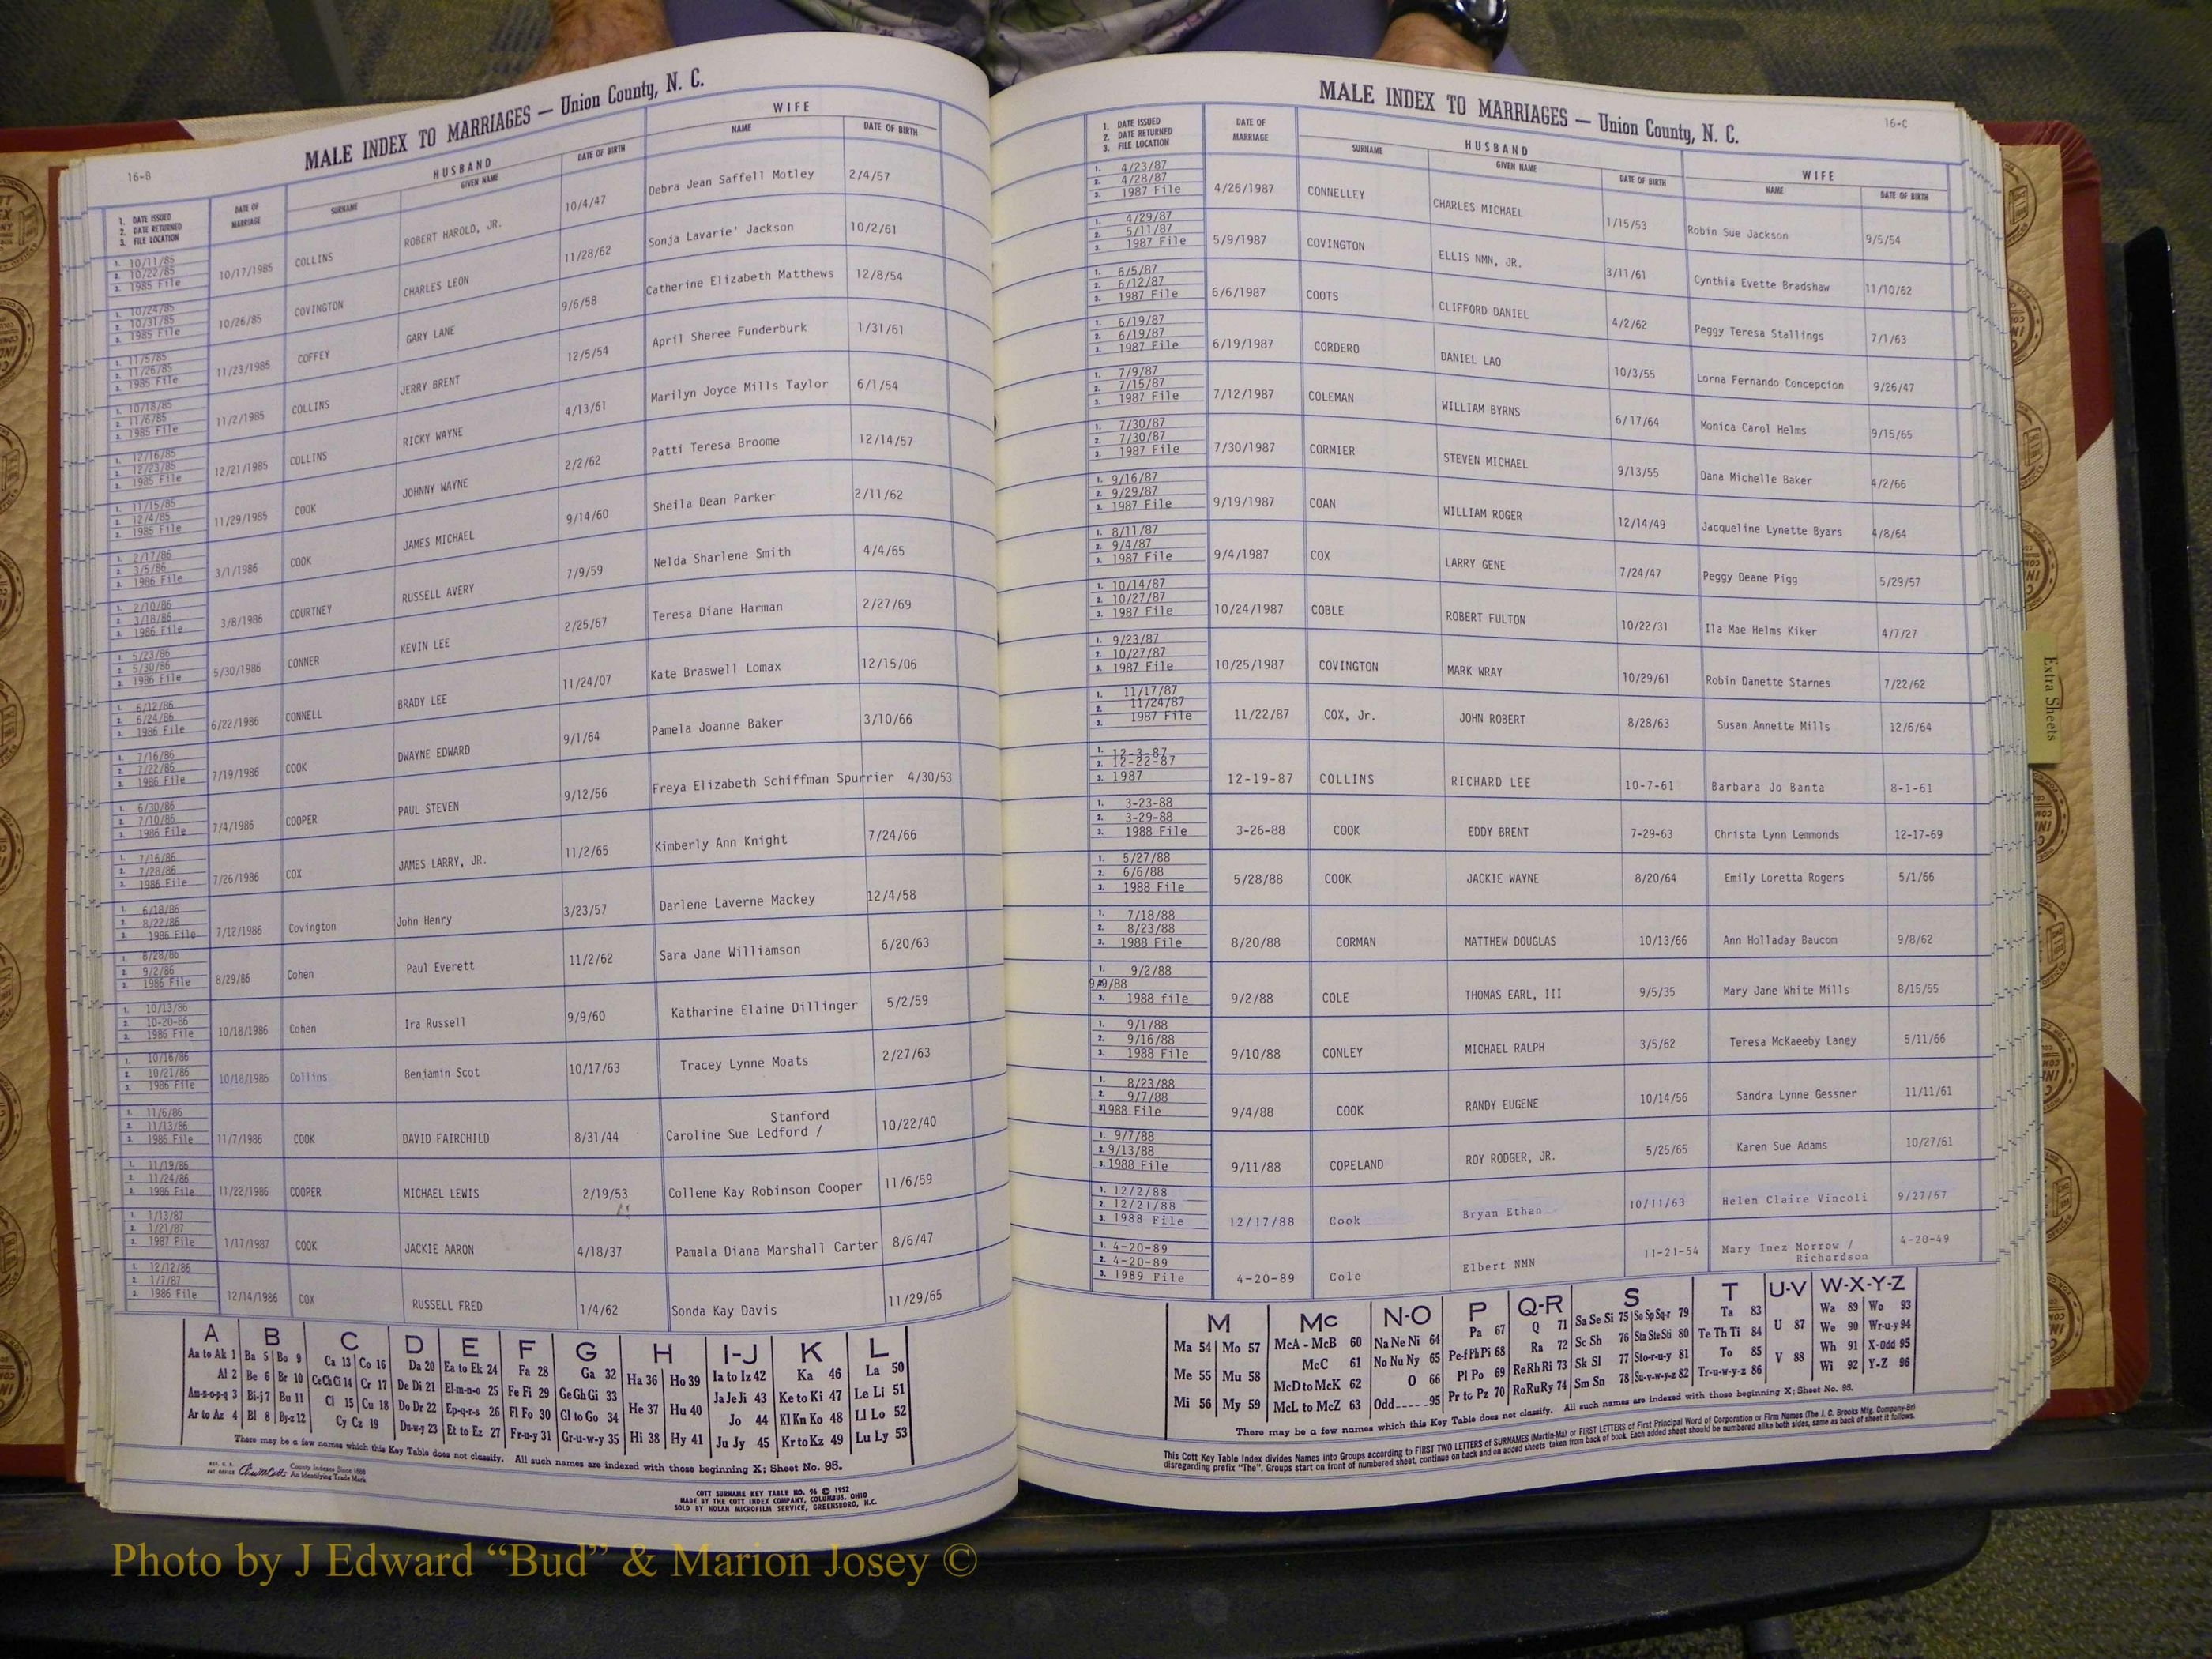 MALE INDEX TO MARRIAGES — Union County, N. C.
16-B
HUSBAND
WIFE
1. DATE ISSUED
2. DATE RETURNED
3. FILE LOCATION
DATE OF MARRIAGE
SURNAME
GIVEN NAME
DATE OF BIRTH
NAME
DATE OF BIRTH
1. 10/11/85 2. 10/22/85 3. 1985 File 10/17/1985 COLLINS ROBERT HAROLD, JR. 10/4/47 Debra Jean Saffell Motley 2/4/57
1. 10/24/85 2. 10/31/85 3. 1985 File 10/26/85 COVINGTON CHARLES LEON 11/28/62 Sonja Lavarie' Jackson 10/2/61
1. 11/5/85 2. 11/26/85 3. 1985 File 11/23/1985 COFFEY GARY LANE 9/6/58 Catherine Elizabeth Matthews 12/8/54
1. 10/18/85 2. 11/6/85 3. 1985 File 11/2/1985 COLLINS JERRY BRENT 12/5/54 April Sheree Funderburk 1/31/61
1. 12/16/85 2. 12/23/85 3. 1985 File 12/21/1985 COLLINS RICKY WAYNE 4/13/61 Marilyn Joyce Mills Taylor 6/1/54
1. 11/15/85 2. 12/4/85 3. 1985 File 11/29/1985 COOK JOHNNY WAYNE 2/2/62 Patti Teresa Broome 12/14/57
1. 2/17/86 2. 3/5/86 3. 1986 File 3/1/1986 COOK JAMES MICHAEL 9/14/60 Sheila Dean Parker 2/11/62
1. 2/10/86 2. 3/18/86 3. 1986 File 3/8/1986 COURTNEY RUSSELL AVERY 7/9/59 Nelda Sharlene Smith 4/4/65
1. 5/23/86 2. 5/30/86 3. 1986 File 5/30/1986 CONNER KEVIN LEE 2/25/67 Teresa Diane Harman 2/27/69
1. 6/12/86 2. 6/24/86 3. 1986 File 6/22/1986 CONNELL BRADY LEE 11/24/07 Kate Braswell Lomax 12/15/06
1. 7/16/86 2. 7/22/86 3. 1986 File 7/19/1986 COOK DWAYNE EDWARD 9/1/64 Pamela Joanne Baker 3/10/66
1. 6/30/86 2. 7/10/86 3. 1986 File 7/4/1986 COOPER PAUL STEVEN 9/12/56 Freya Elizabeth Schiffman Spurrier 4/30/53
1. 7/16/86 2. 7/28/86 3. 1986 File 7/26/1986 COX JAMES LARRY, JR. 11/2/65 Kimberly Ann Knight 7/24/66
1. 6/18/86 2. 8/22/86 3. 1986 File 7/12/1986 Covington John Henry 3/23/57 Darlene Laverne Mackey 12/4/58
1. 8/28/86 2. 9/2/86 3. 1986 File 8/29/86 Cohen Paul Everett 11/2/62 Sara Jane Williamson 6/20/63
1. 10/13/86 2. 10-20-86 3. 1986 File 10/18/1986 Cohen Ira Russell 9/9/60 Katharine Elaine Dillinger 5/2/59
1. 10/16/86 2. 10/21/86 3. 1986 File 10/18/1986 Collins Benjamin Scot 10/17/63 Tracey Lynne Moats 2/27/63
1. 11/6/86 2. 11/13/86 3. 1986 File 11/7/1986 COOK DAVID FAIRCHILD 8/31/44 Caroline Sue Ledford / Stanford 10/22/40
1. 11/19/86 2. 11/24/86 3. 1986 File 11/22/1986 COOPER MICHAEL LEWIS 2/19/53 Collene Kay Robinson Cooper 11/6/59
1. 1/13/87 2. 1/21/87 3. 1987 File 1/17/1987 COOK JACKIE AARON 4/18/37 Pamala Diana Marshall Carter 8/6/47
1. 12/12/86 2. 1/7/87 3. 1986 File 12/14/1986 COX RUSSELL FRED 1/4/62 Sonda Kay Davis 11/29/65
A B C D E F G H I-J K L
Aa to Ak 1 Ba 5 Bo 9 Ca 13 Co 16 Da 20 Ea to Ek 24 Fa 28 Ga 32 Ha 36 Ho 39 Ia to Iz 42 Ka 46 La 50
Al 2 Be 6 Br 10 Ce Ch Ci 14 Cr 17 De Di 21 El-m-n-o 25 Fe Fi 29 Ge Gh Gi 33 He 37 Hu 40 Ja Je Ji 43 Ke to Ki 47 Le Li 51
Am-n-o-p-q 3 Bi-j 7 Bu 11 Cl 15 Cu 18 Do Dr 22 Ep-q-r-s 26 Fl Fo 30 Gl to Go 34 Hi 38 Hy 41 Jo 44 Kl Kn Ko 48 Ll Lo 52
Ar to Az 4 Bl 8 By-z 12 Cy Cz 19 Du-w-y 23 Et to Ez 27 Fr-u-y 31 Gr-u-w-y 35 Ju Jy 45 Kr to Kz 49 Lu Ly 53
There may be a few names which this Key Table does not classify. All such names are indexed with those beginning X; Sheet No. 95.
County Indexes Since 1888
An Identifying Trade Mark
COTT SURNAME KEY TABLE NO. 96 © 1952
MADE BY THE COTT INDEX COMPANY, COLUMBUS, OHIO
SOLD BY NOLAN MICROFILM SERVICE, GREENSBORO, N.C.
MALE INDEX TO MARRIAGES — Union County, N. C.
16-C
HUSBAND
WIFE
1. DATE ISSUED
2. DATE RETURNED
3. FILE LOCATION
DATE OF MARRIAGE
SURNAME
GIVEN NAME
DATE OF BIRTH
NAME
DATE OF BIRTH
1. 4/23/87 2. 4/28/87 3. 1987 File 4/26/1987 CONNELLEY CHARLES MICHAEL 1/15/53 Robin Sue Jackson 9/5/54
1. 4/29/87 2. 5/11/87 3. 1987 File 5/9/1987 COVINGTON ELLIS NMN, JR. 3/11/61 Cynthia Evette Bradshaw 11/10/62
1. 6/5/87 2. 6/12/87 3. 1987 File 6/6/1987 COOTS CLIFFORD DANIEL 4/2/62 Peggy Teresa Stallings 7/1/63
1. 6/19/87 2. 6/19/87 3. 1987 File 6/19/1987 CORDERO DANIEL LAO 10/3/55 Lorna Fernando Concepcion 9/26/47
1. 7/9/87 2. 7/15/87 3. 1987 File 7/12/1987 COLEMAN WILLIAM BYRNS 6/17/64 Monica Carol Helms 9/15/65
1. 7/30/87 2. 7/30/87 3. 1987 File 7/30/1987 CORMIER STEVEN MICHAEL 9/13/55 Dana Michelle Baker 4/2/66
1. 9/16/87 2. 9/29/87 3. 1987 File 9/19/1987 COAN WILLIAM ROGER 12/14/49 Jacqueline Lynette Byars 4/8/64
1. 8/11/87 2. 9/4/87 3. 1987 File 9/4/1987 COX LARRY GENE 7/24/47 Peggy Deane Pigg 5/29/57
1. 10/14/87 2. 10/27/87 3. 1987 File 10/24/1987 COBLE ROBERT FULTON 10/22/31 Ila Mae Helms Kiker 4/7/27
1. 9/23/87 2. 10/27/87 3. 1987 File 10/25/1987 COVINGTON MARK WRAY 10/29/61 Robin Danette Starnes 7/22/62
1. 11/17/87 2. 11/24/87 3. 1987 File 11/22/87 COX, Jr. JOHN ROBERT 8/28/63 Susan Annette Mills 12/6/64
1. 12-3-87 2. 12-22-87 3. 1987 12-19-87 COLLINS RICHARD LEE 10-7-61 Barbara Jo Banta 8-1-61
1. 3-23-88 2. 3-29-88 3. 1988 File 3-26-88 COOK EDDY BRENT 7-29-63 Christa Lynn Lemmonds 12-17-69
1. 5/27/88 2. 6/6/88 3. 1988 File 5/28/88 COOK JACKIE WAYNE 8/20/64 Emily Loretta Rogers 5/1/66
1. 7/18/88 2. 8/23/88 3. 1988 File 8/20/88 CORMAN MATTHEW DOUGLAS 10/13/66 Ann Holladay Baucom 9/8/62
1. 9/2/88 9/9/88 3. 1988 file 9/2/88 COLE THOMAS EARL, III 9/5/35 Mary Jane White Mills 8/15/55
1. 9/1/88 2. 9/16/88 3. 1988 File 9/10/88 CONLEY MICHAEL RALPH 3/5/62 Teresa McKaeeby Langy 5/11/66
1. 8/23/88 2. 9/7/88 3. 1988 File 9/4/88 COOK RANDY EUGENE 10/14/56 Sandra Lynne Gessner 11/11/61
1. 9/7/88 2. 9/13/88 3. 1988 File 9/11/88 COPELAND ROY RODGER, JR. 5/25/65 Karen Sue Adams 10/27/61
1. 12/2/88 2. 12/21/88 3. 1988 File 12/17/88 Cook Bryan Ethan 10/11/63 Helen Claire Vincoli 9/27/67
1. 4-20-89 2. 4-20-89 3. 1989 File 4-20-89 Cole Elbert NMN 11-21-54 Mary Inez Morrow / Richardson 4-20-49
M Mc N-O P Q-R S T U-V W-X-Y-Z
Ma 54 Mo 57 McA - McB 60 Na Ne Ni 64 Pa 67 Q 71 Sa Se Si 75 So Sp Sq-r 79 Ta 83 U 87 Wa 89 Wo 93
Me 55 Mu 58 McC 61 No Nu Ny 65 Pe-f Ph Pi 68 Ra 72 Sc Sh 76 Sta Ste Sti 80 Te Th Ti 84 V 88 We 90 Wr-u-y 94
Mi 56 My 59 McD to McK 62 O 66 Pl Po 69 Re Rh Ri 73 Sk Sl 77 Sto-r-u-y 81 To 85 Wh 91 X-Odd 95
McL to McZ 63 Odd 95 Pr to Pz 70 Ro Ru Ry 74 Sm Sn 78 Su-v-w-y-z 82 Tr-u-w-y-z 86 Wi 92 Y-Z 96
There may be a few names which this Key Table does not classify. All such names are indexed with those beginning X; Sheet No. 95.
This Cott Key Table Index divides Names into Groups according to FIRST TWO LETTERS of SURNAMES (Martin-Ma) or FIRST LETTERS of First Principal Word of Corporation or Firm Names (The J. C. Brooks Mfg. Company-Br)
disregarding prefix "The". Groups start on front of numbered sheet, continue on back and on added sheets taken from back of book. Each added sheet should be numbered alike both sides, same as back of sheet it follows.
Extra Sheets
Photo by J Edward “Bud” & Marion Josey ©